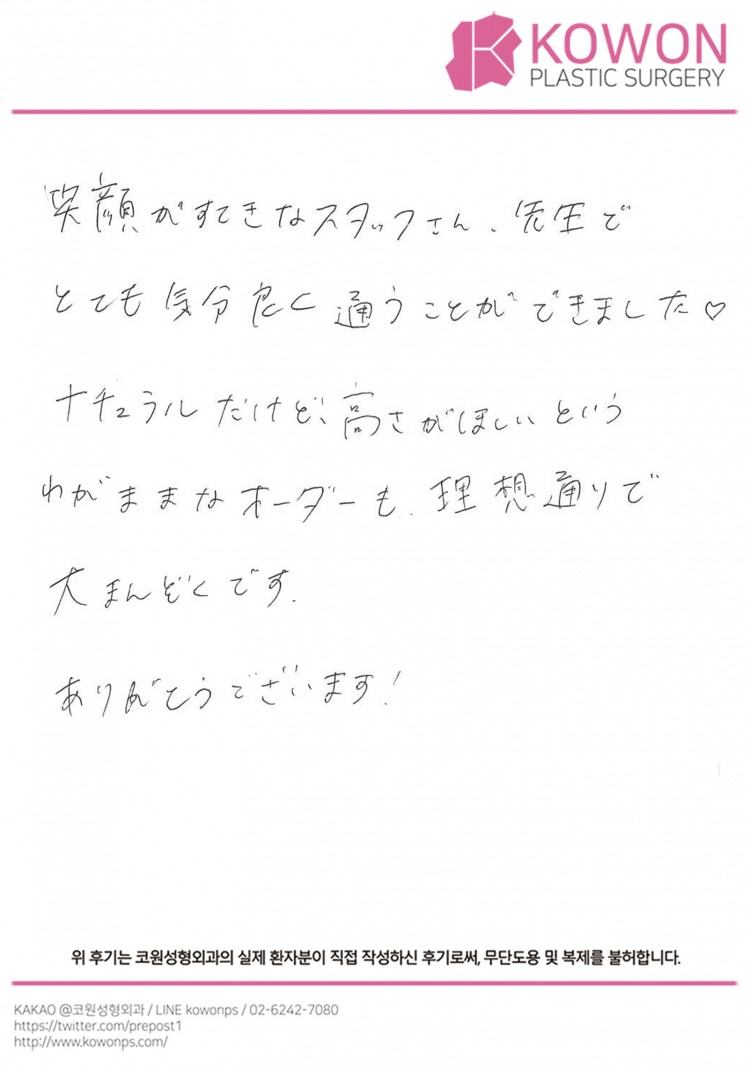 KOWON
PLASTIC SURGERY
笑顔がすてきなスタッフさん、先生で
とても気分良く通うことができました♡
ナチュラルだけど、高さがほしいという
わがままなオーダーも、理想通りで
大まんぞくです.
ありがとうございます!
위 후기는 코원성형외과의 실제 환자분이 직접 작성하신 후기로써, 무단도용 및 복제를 불허합니다.
KAKAO @코원성형외과 / LINE kowonps / 02-6242-7080
https://twitter.com/prepost1
http://www.kowonps.com/